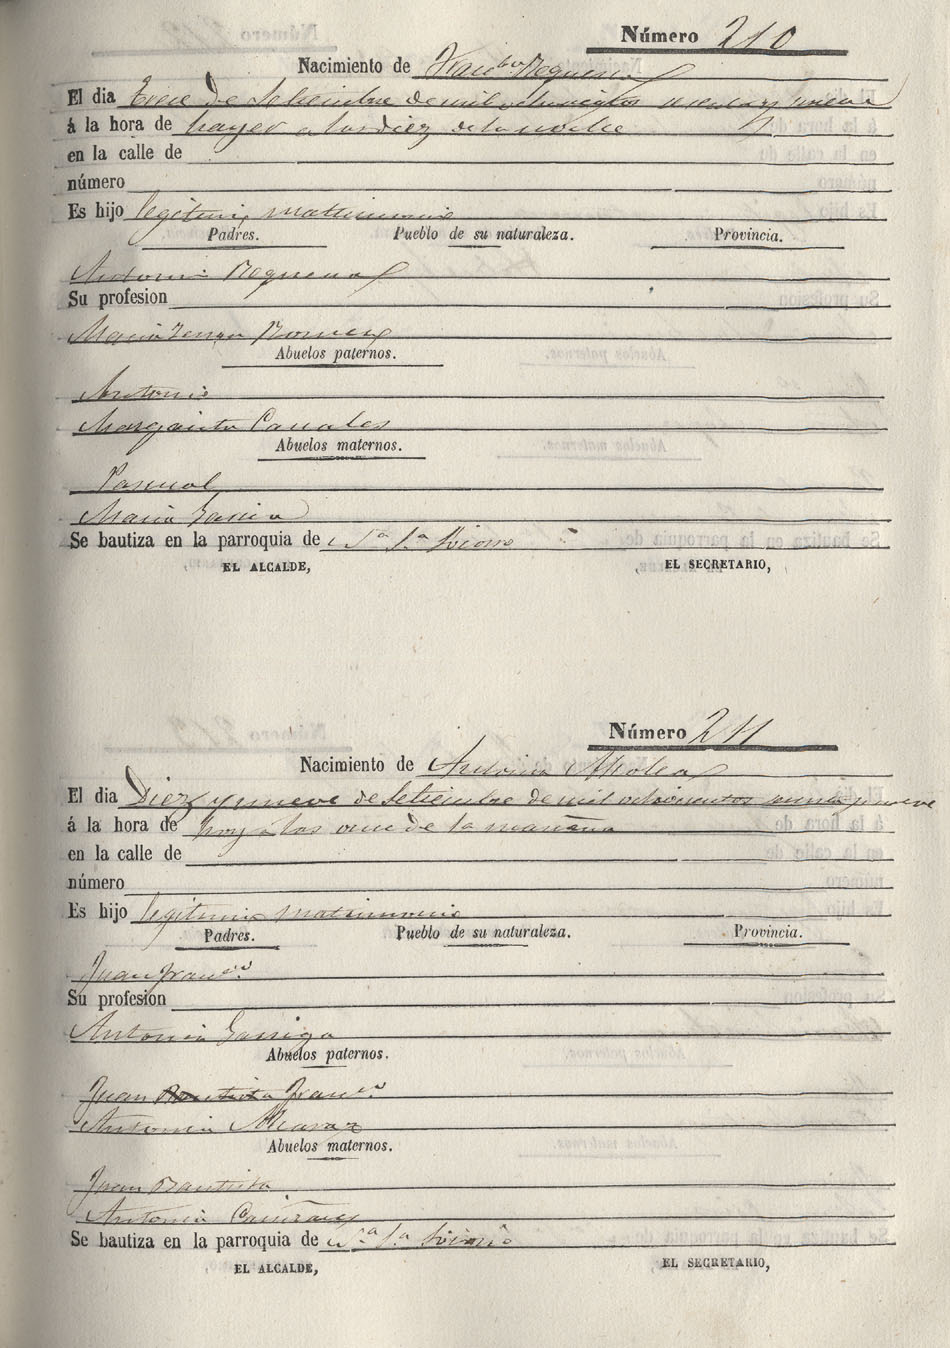 Número 210
Nacimiento de Fran.co Requena
El dia trece de Setiembre de mil ochocientos sesenta y nueve
á la hora de hayer a las diez de la noche
en la calle de
número
Es hijo legitimo matrimonio
Padres. Pueblo de su naturaleza. Provincia.
Antonio Requena
Su profesion
Maria Romero
Abuelos paternos.
Antonio
Margarita Canales
Abuelos maternos.
Pascual
Maria Garcia
Se bautiza en la parroquia de N.a S.a
EL ALCALDE, EL SECRETARIO,
Número 211
Nacimiento de Antonia
El dia Diez y nueve de Setiembre de mil ochocientos sesenta y nueve
á la hora de hoy á las once de la mañana
en la calle de
número
Es hijo legitimo matrimonio
Padres. Pueblo de su naturaleza. Provincia.
Juan Fran.co
Su profesion
Antonia Garriga
Abuelos paternos.
Juan Bautista Fran.co
Antonia Alcaraz
Abuelos maternos.
Juan Bautista
Antonia
Se bautiza en la parroquia de N.a S.a
EL ALCALDE, EL SECRETARIO,